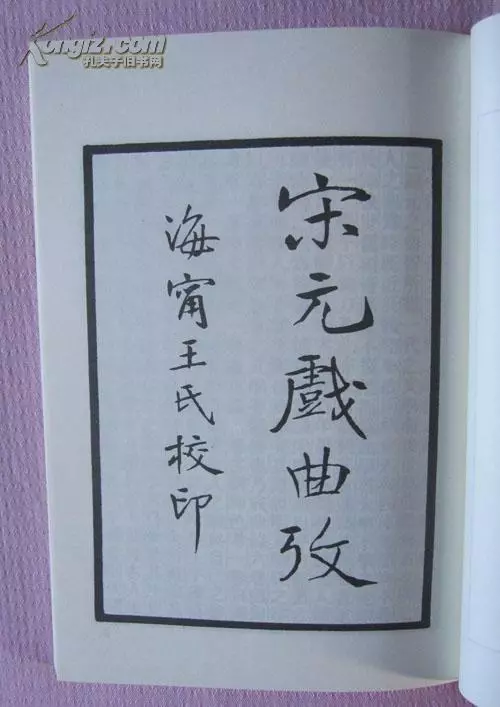 Kongfz.com
孔夫子旧书网
宋元戲曲攷
海甯王氏校印